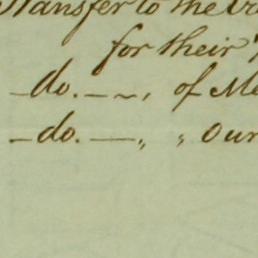 Transfer to the
for their
—do. — ~, of
—do. — „ „ Our